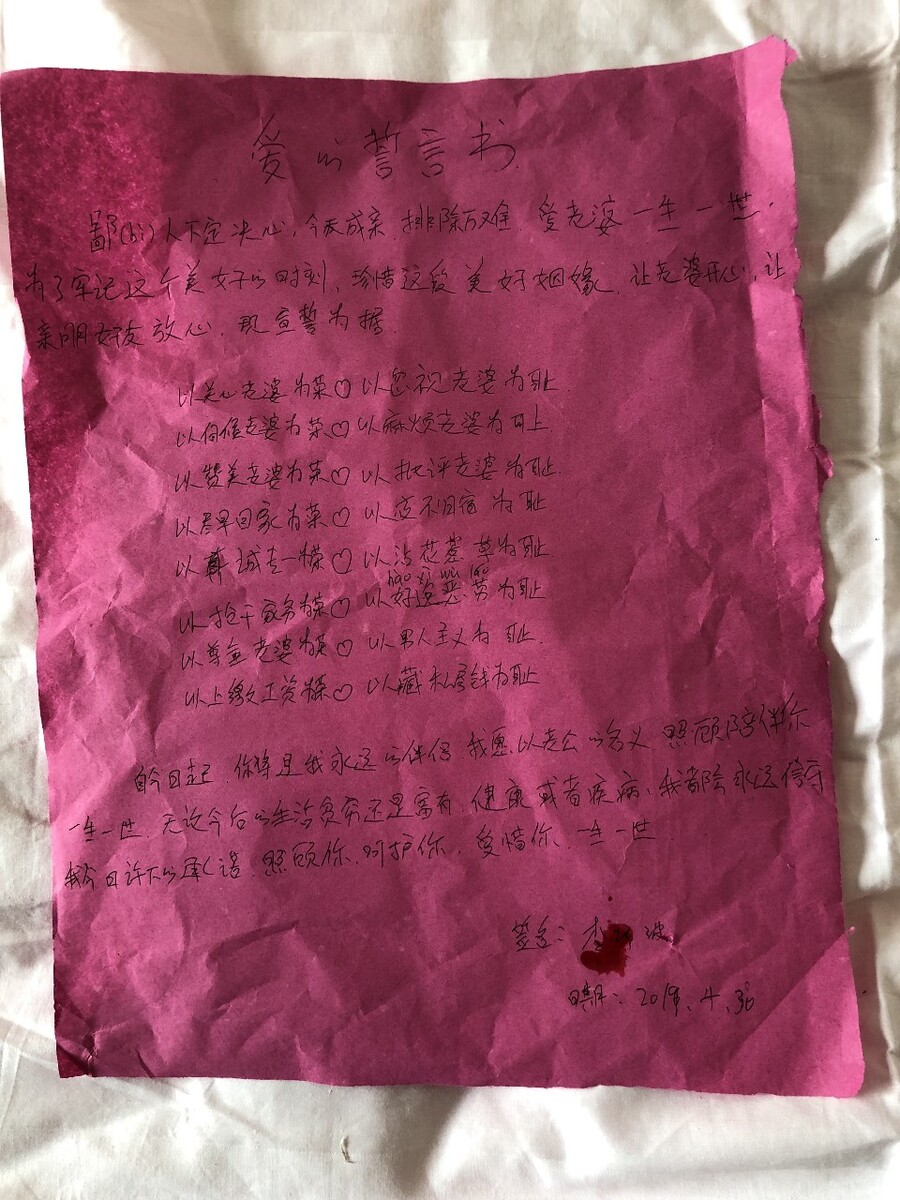 爱的誓言书
鄙(bi)人下定决心,今天成亲.排除万难.爱老婆一生一世.
为了牢记这个美好的时刻,珍惜这段美好姻缘.让老婆开心,让
亲朋好友放心.现宣誓为据.
以关心老婆为荣♡以忽视老婆为耻.
以伺候老婆为荣♡以麻烦老婆为耻.
以赞美老婆为荣♡以批评老婆为耻.
以尽早回家为荣♡以夜不归宿为耻
以 诚专一为荣♡以沾花惹草为耻.
hao yi wu lao
以抢干家务为荣♡以好逸恶劳为耻
以尊重老婆为荣♡以男人主义为耻.
以上缴工资为荣♡以藏私房钱为耻
自今日起.你将是我永远的伴侣 我愿以老公的名义 照顾陪伴你
一生一世.无论今后的生活贫穷还是富有.健康或者疾病,我都会永远信守
我今日许下的承诺.照顾你.呵护你.爱惜你.一生一世
签名:李 波
日期:2019.4.30